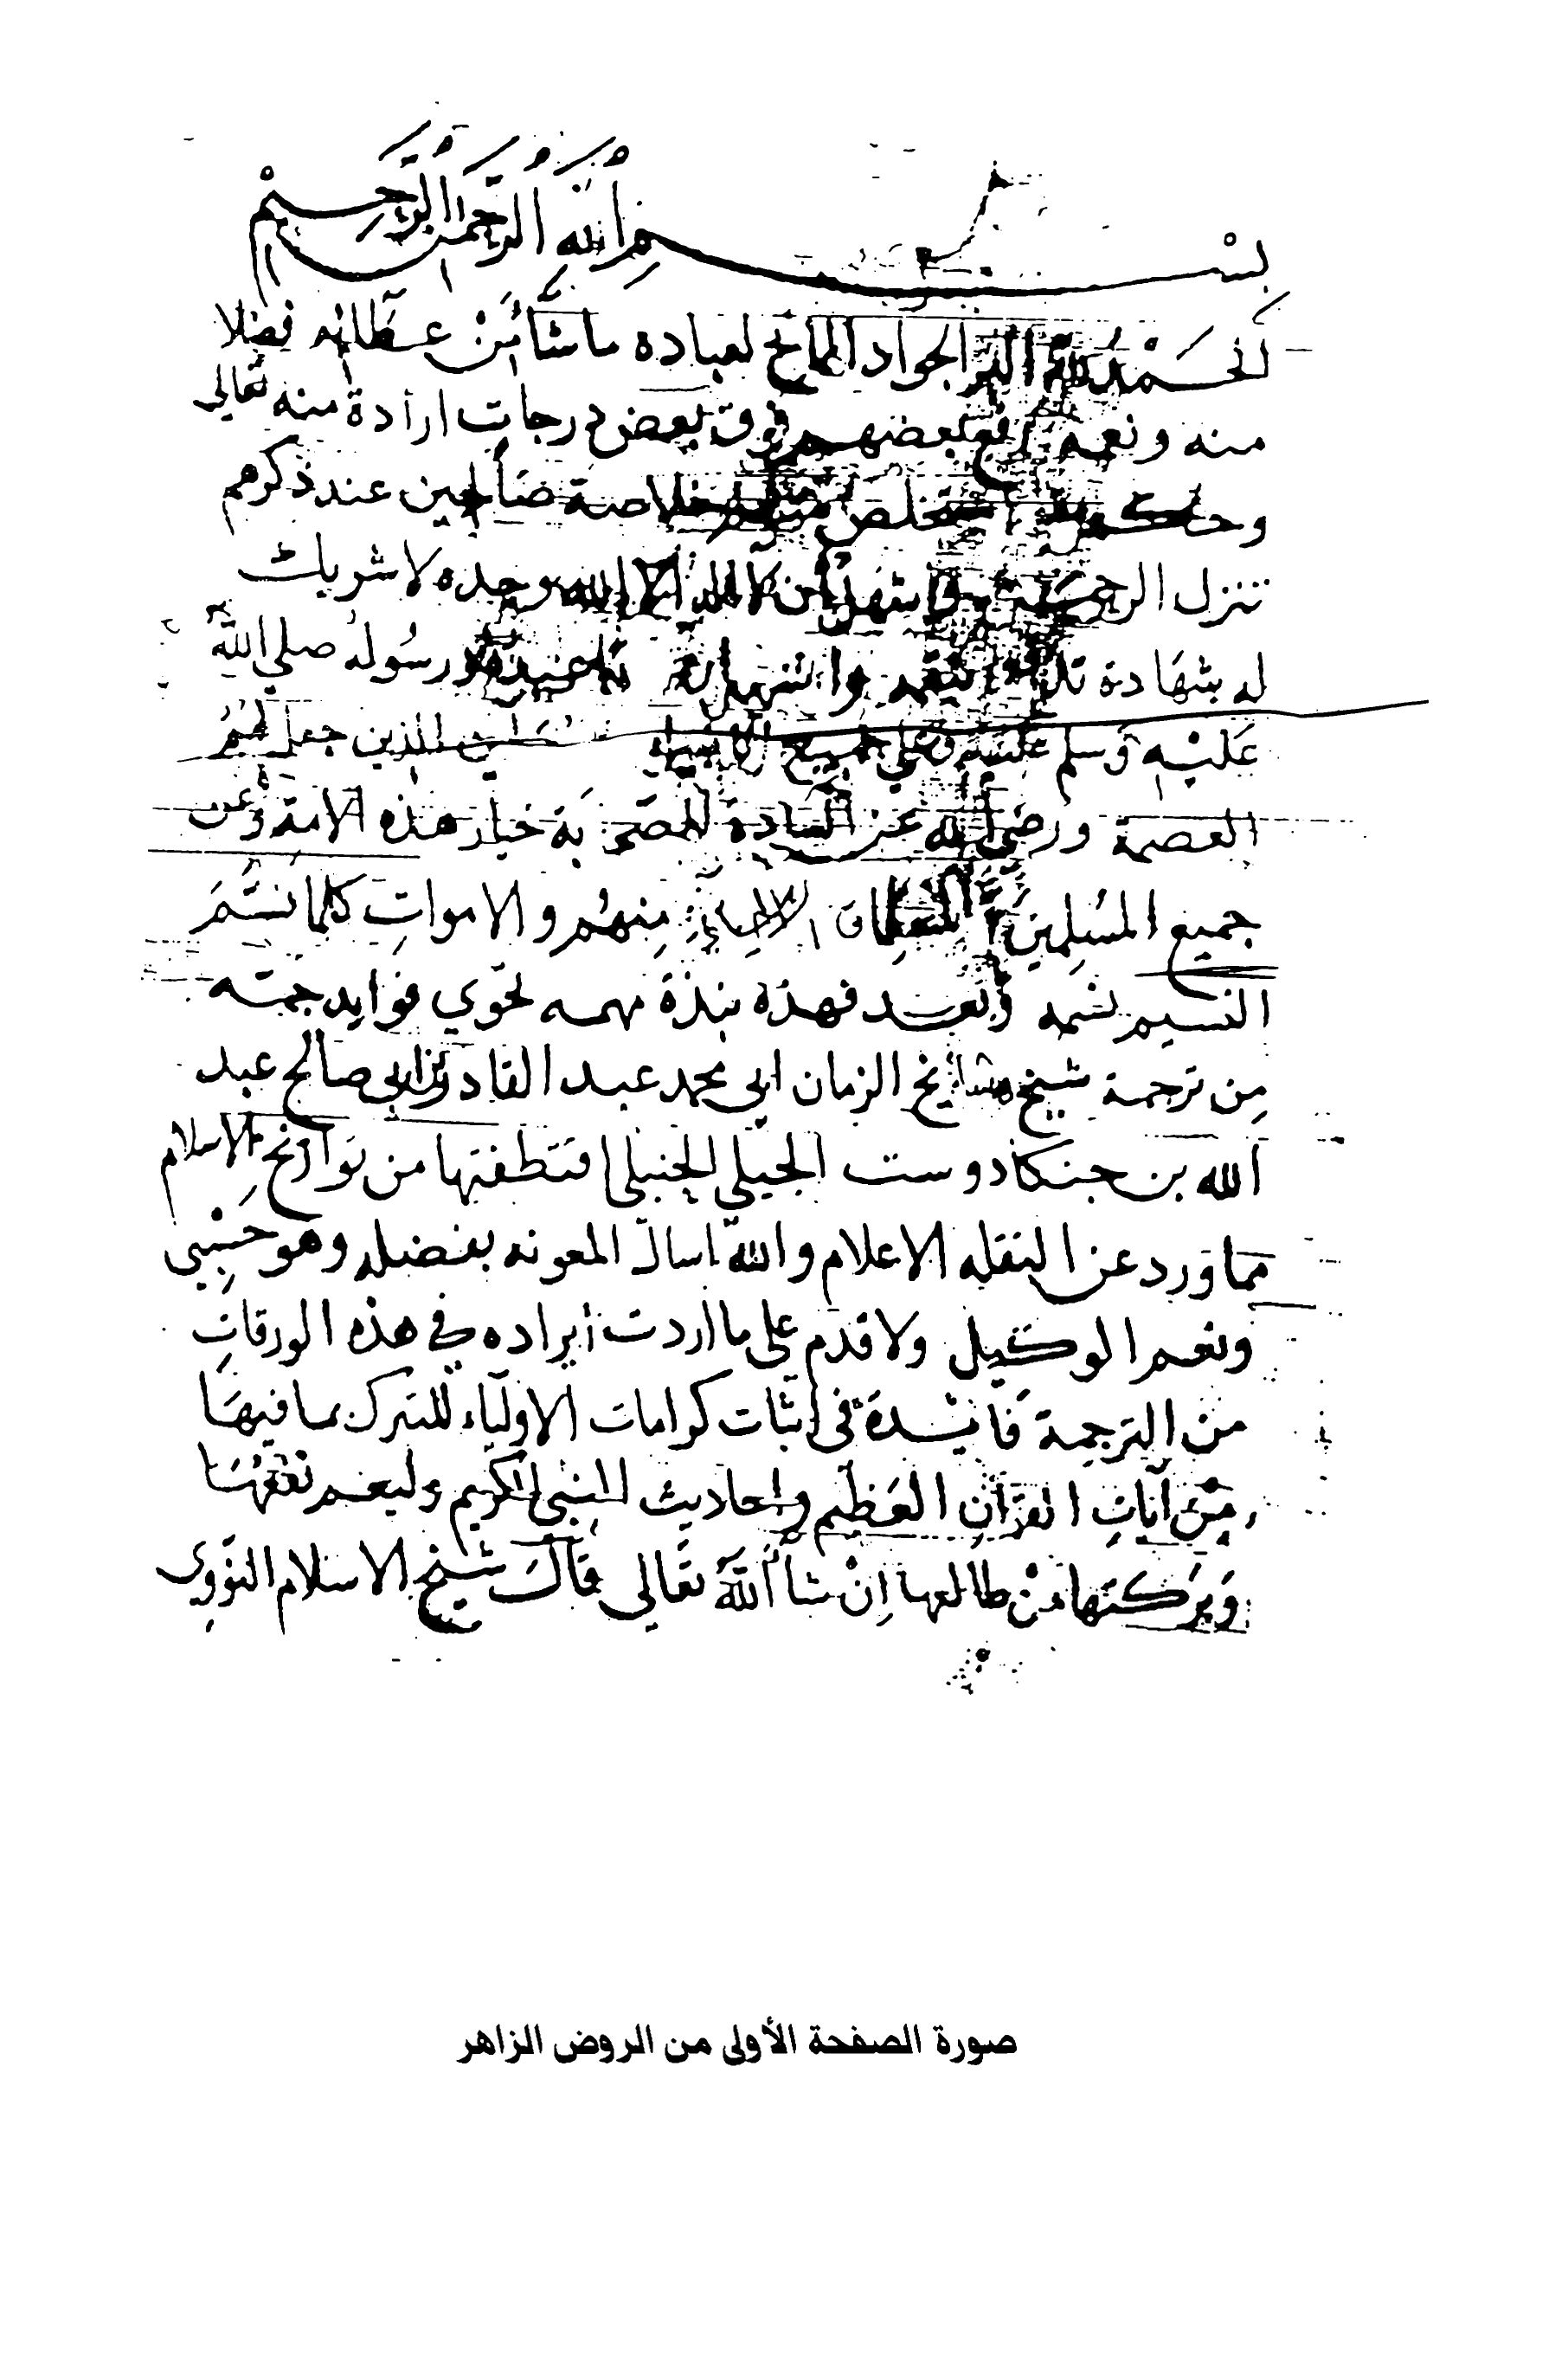 بسم الله الرحمن الرحيم
الحمد لله البر الجواد المانح لعباده ما شآء من عطائه فضلا
منه ونعمه رفع بعضهم فوق بعض درجات ارادة منه تعالى
وحكمة استخلص منهم خلاصة صالحين عند ذكرهم
تنزل الرحمة واشهد أن لا اله الا الله وحده لا شريك
له شهادة واشهد ان عبده ورسوله صلى الله
عَليْه وَسلم وعلى جميع الأنبياء الذين جعل لهم
العصمة ورضي الله عن السادة الصحابة خيار هذه الامة وعن
جميع المسلمين الاحياء منهم والاموات كلما نسَّمَ
النسيم نسمه وبعد فهذه نبذة مهمه تحوي فوايد جمّه
مِن ترجمة شيخ مشايخ الزمان ابي محمد عبد القادر بن ابي صالح عبد
الله بن جنكادوست الجيلي الحنبلي اقتطفتها من تواريخ الاسلام
مما وَرد عن النقله الاعلام والله اسال المعونه بفضله وهو حَسْبِي
ونعم الوكيل ولاقدم على ما اردت أيراده في هذه الورقات
من الترجمة فَائدة في اثبات كرامات الاوليَاء للتبرك بما فيهَا
من آيات القرآن العَظيم واحاديث النبي الكريم وليعم نفعُهَا
وَبرَكتها مَنْ طالعها اِنْ شاَ اللهُ تعَالى قالَ شيخ الاسلام النوَوِي
صورة الصفحة الأولى من الروض الزاهر